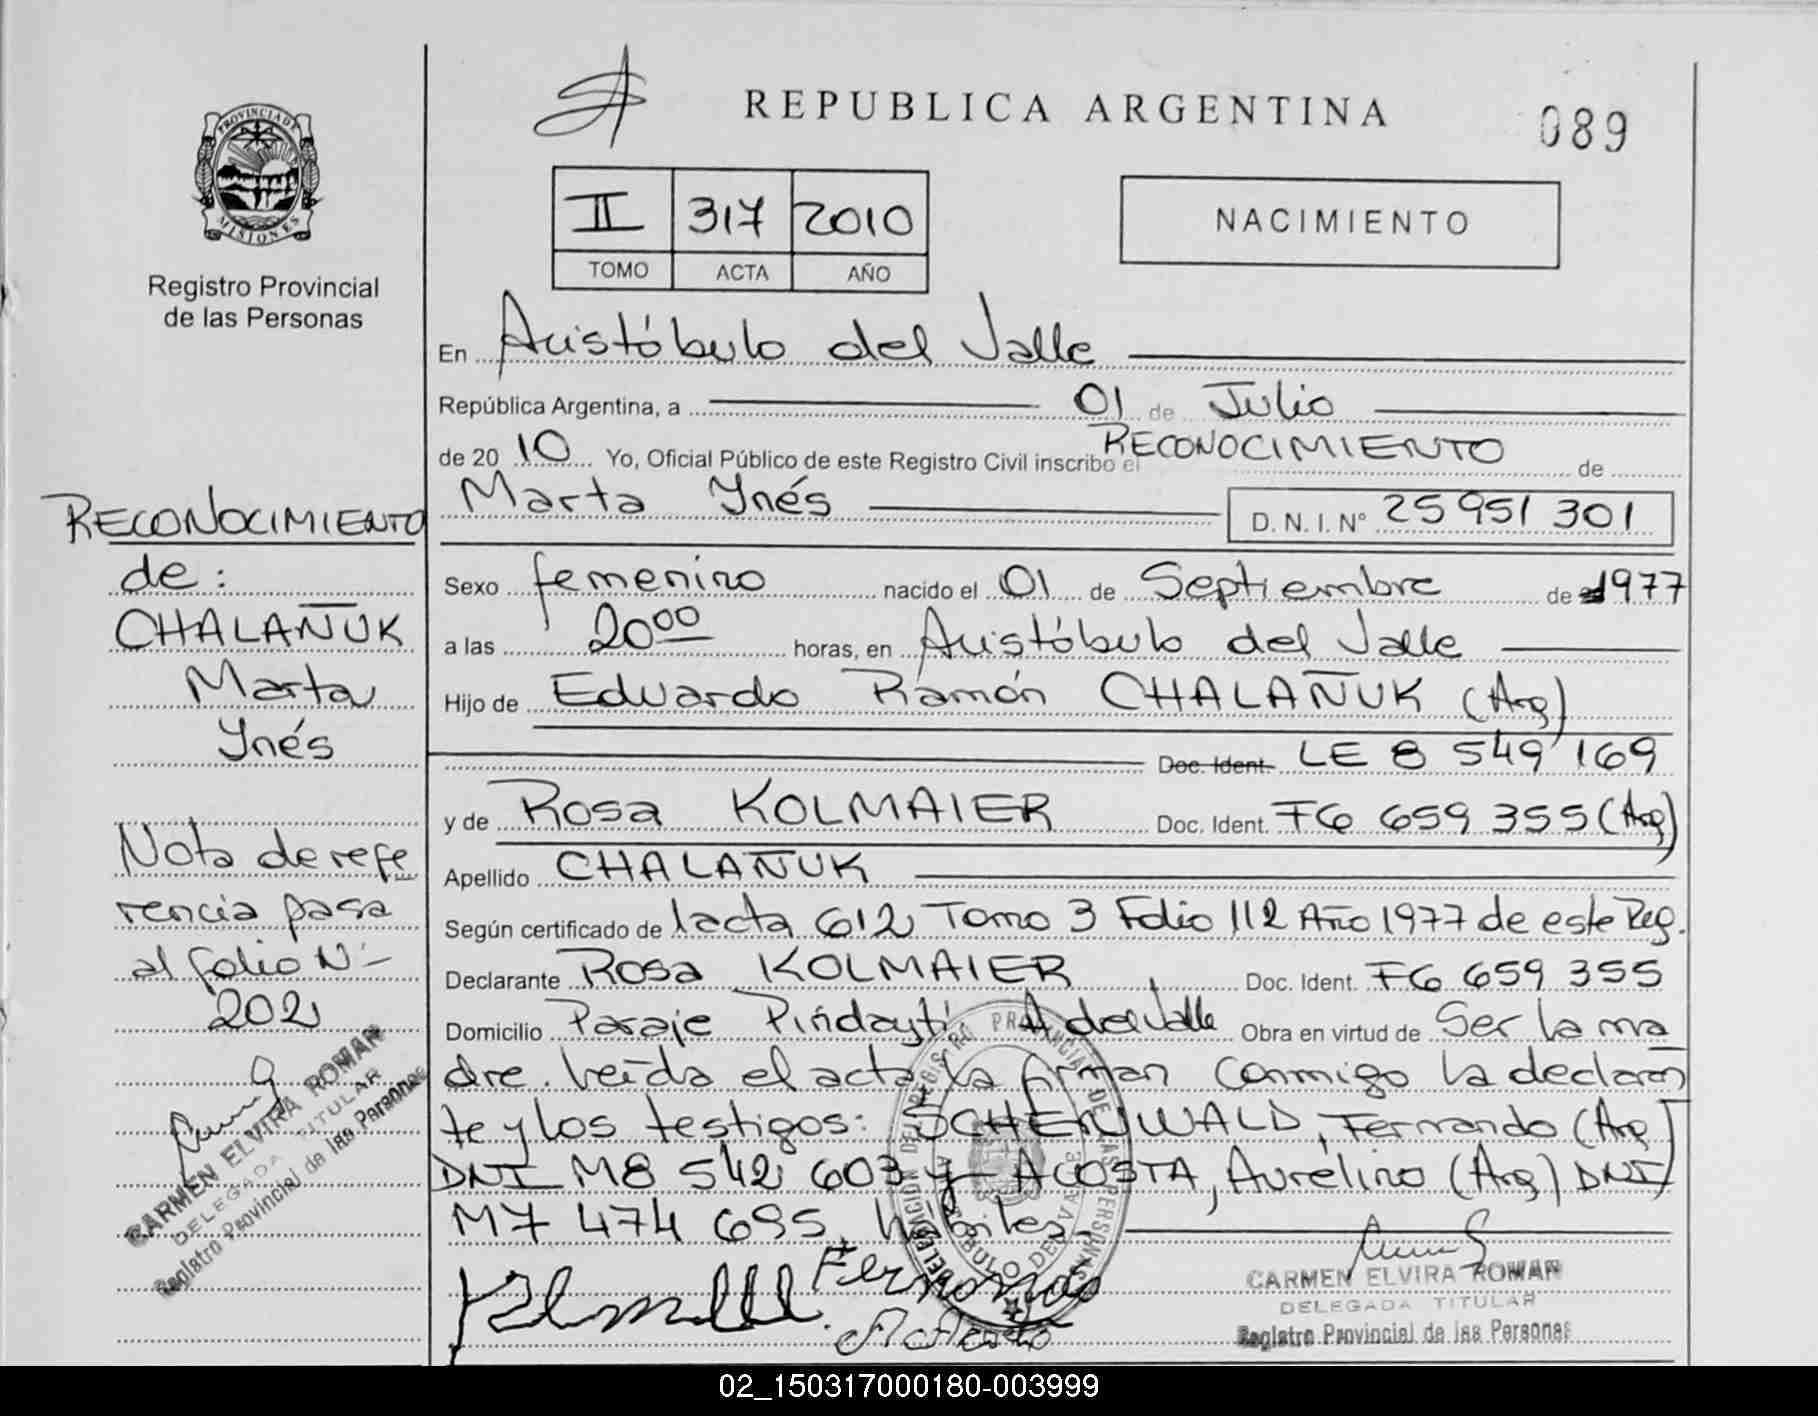 PROVINCIA DE
MISIONES
Registro Provincial
de las Personas
RECONOCIMIENTO
de:
CHALAÑUK
Marta
Ynés
Nota de refe
rencia pasa
al folio Nº
202
CARMEN ELVIRA ROMAN
DELEGADA TITULAR
Registro Provincial de las Personas
REPUBLICA ARGENTINA
089
II 317 2010
TOMO ACTA AÑO
NACIMIENTO
En Aristóbulo del Valle
República Argentina, a 01 de Julio
de 20 10 Yo, Oficial Público de este Registro Civil inscribo el RECONOCIMIENTO de
Marta Ynés D. N. I. Nº 25 951 301
Sexo femenino nacido el 01 de Septiembre de 1977
a las 20 00 horas, en Aristóbulo del Valle
Hijo de Eduardo Ramón CHALAÑUK (Arg)
Doc. Ident. LE 8 549 169
y de Rosa KOLMAIER Doc. Ident. F6 659 355 (Arg)
Apellido CHALAÑUK
Según certificado de l acta 612 Tomo 3 Folio 112 Año 1977 de este Reg.
Declarante Rosa KOLMAIER Doc. Ident. F6 659 355
Domicilio Paraje Pindaytí A del Valle Obra en virtud de Ser la ma
dre. Leída el acta la firman conmigo la declaran
te y los testigos: Fernando (Arg)
DNI M8 542 603 y ACOSTA, Aurelino (Arg) DNI
M7 474 695, hábiles.
Fernando
CARMEN ELVIRA ROMAN
DELEGADA TITULAR
Registro Provincial de las Personas
02_150317000180-003999